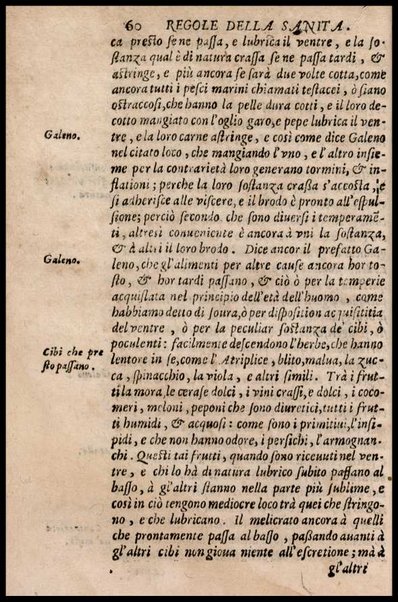 60 REGOLE DELLA SANITA.
ca presto se ne passa, e lubrica il ventre, e la so-
stanza qual è di natura crassa se ne passa tardi, &
astringe, e più ancora se sarà due volte cotta, come
ancora tutti i pesci marini chiamati testacei, ò siano
ostraccosi, che hanno la pelle dura cotti, e il loro de-
cotto mangiato con l'oglio garo, e pepe lubrica il ven-
tre, e la loro carne astringe, e così come dice Galeno
Galeno.
nel citato loco, che mangiando l'vno, e l'altro insie-
me per la contrarietà loro generano tormini, & in-
flationi; perche la loro sostanza crassa s'accosta, e
si adherisce alle viscere, e il brodo è pronto all'espul-
sione; perciò secondo che sono diuersi i temperamē-
ti, altresì conueniente è ancora à vni la sostanza,
& à altri il loro brodo. Dice ancor il prefatto Ga-
Galeno.
leno, che gl'alimenti per altre cause ancora hor to-
sto, & hor tardi passano, & ciò è per la temperie
acquistata nel principio dell'età dell'huomo, come
habbiamo detto di soura, ò per disposition acquisititia
del ventre, ò per la peculiar sostanza de' cibi, ò
poculenti: facilmente descendono l'herbe, che hanno
Cibi che pre
sto passano.
lentore in se, come l'Atriplice, blito, malua, la zuc-
ca, spinacchio, la viola, e altri simili. Trà i frut-
ti la mora, le cerase dolci, i vini crassi, e dolci, i coco-
meri, meloni, peponi che sono diuretici, tutti i frut-
ti humidi, & acquosi: come sono i primitiui, l'insi-
pidi, e che non hanno odore, i persichi, l'armognan-
chi. Questi tai frutti, quando sono riceuuti nel ven-
tre, e chi lo hà di natura lubrico subito passano al
basso, à gl'altri stanno nella parte più sublime, e
così in ciò tengono mediocre loco trà quei che stringo-
no, e che lubricano. Il melicrato ancora à quelli
che prontamente passa al basso, passando auanti à
gl'altri cibi non gioua niente all'escretione; mà à
gl'altri